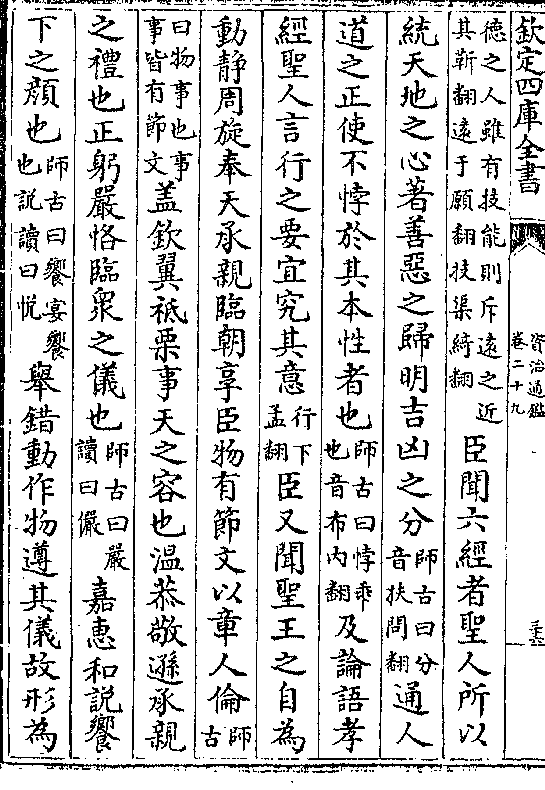 欽定四庫全書
資治通鑑
卷二十九
德之人雖有技能則斥遠之近
其靳翻遠于願翻技渠綺翻
臣聞六經者聖人所以
統天地之心著善惡之歸明吉凶之分
師古曰分
音扶問翻
通人
道之正使不悖於其本性者也
師古曰悖乖
也音布内翻
及論語孝
經聖人言行之要宜究其意
行下
孟翻
臣又聞聖王之自為
動静周旋奉天承親臨朝享臣物有節文以章人倫
師
古
曰物事也事
事皆有節文
盖欽翼祗栗事天之容也温恭敬遜承親
之禮也正躬嚴恪臨衆之儀也
師古曰嚴
讀曰儼
嘉惠和説饗
下之顔也
師古曰饗宴饗
也説讀曰悦
舉錯動作物遵其儀故形為